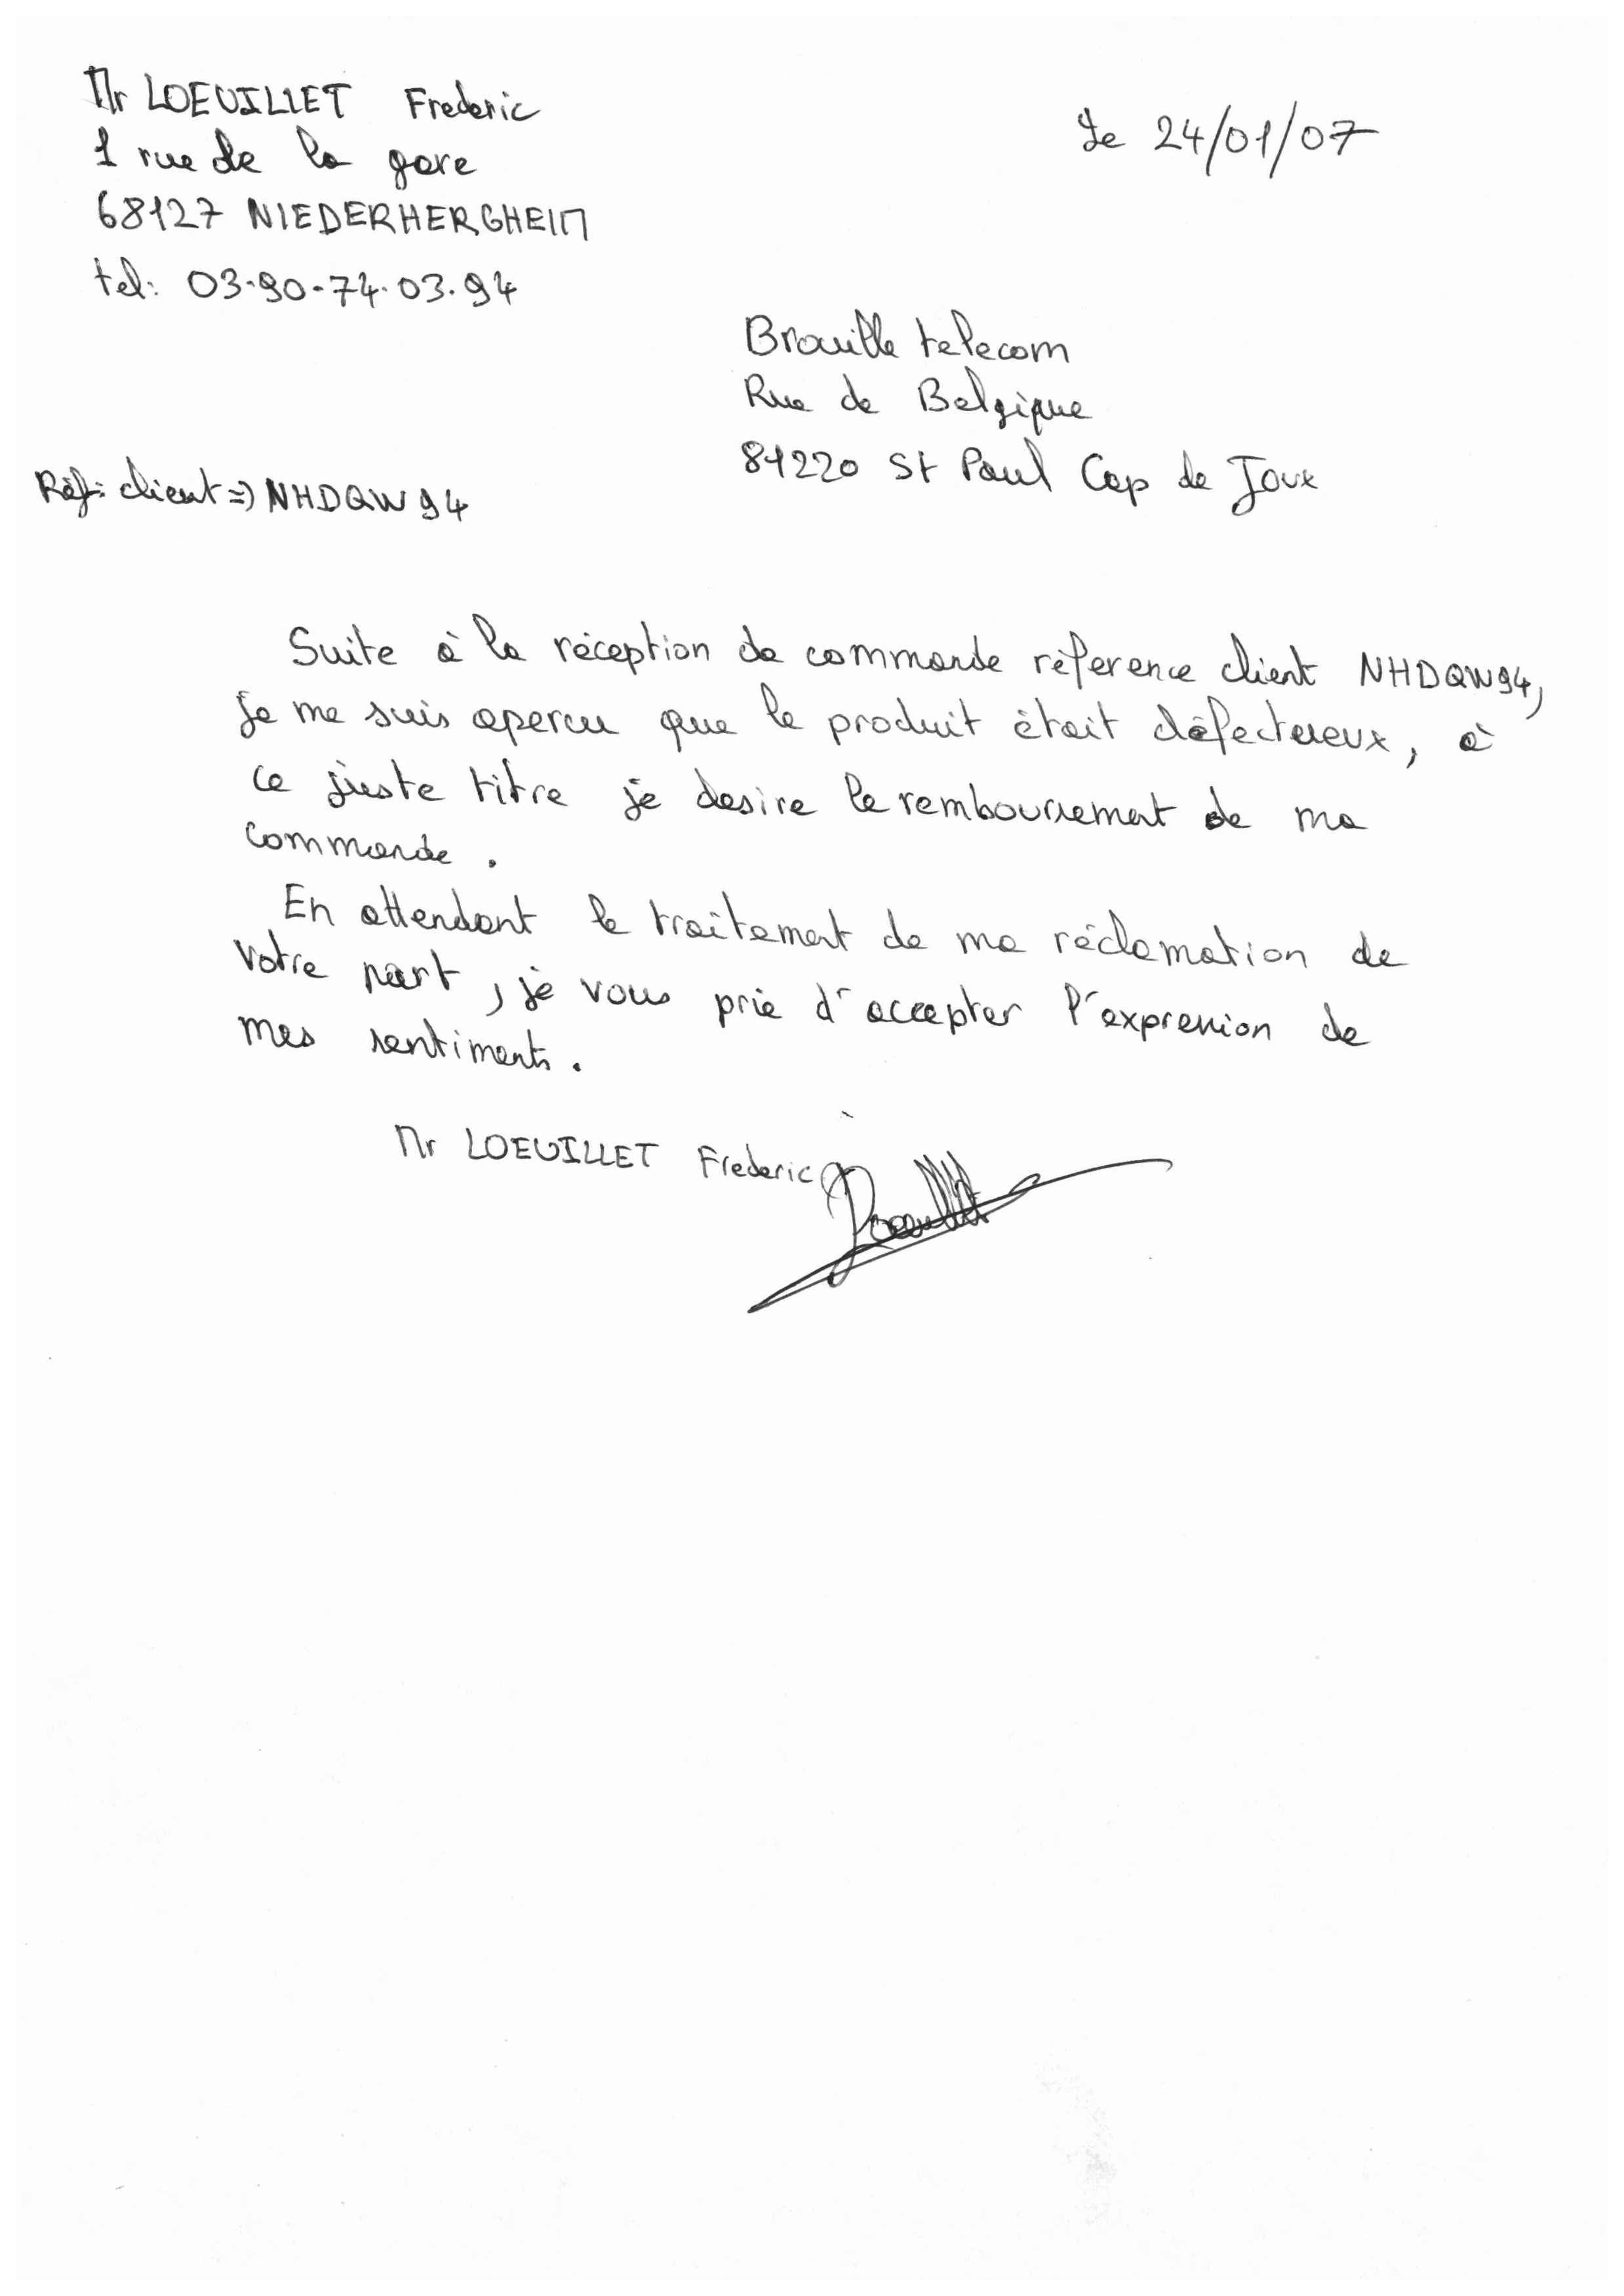 Mr LOEUILLET Frederic
1 rue de la gare
68127 NIEDERHERGHEIM
tel: 03.90.74.03.94
Le 24/01/07
Brouille telecom
Rue de Belgique
81220 St Paul Cap de Joux
Réf: client => NHDQW94
Suite à la réception de commande réference client NHDQW94,
je me suis apercu que le produit était défectueux, à
ce juste titre je desire le remboursement de ma
commande.
En attendant le traitement de ma réclamation de
votre part, je vous prie d'accepter l'expression de
mes sentiments.
Mr LOEUILLET Frederic